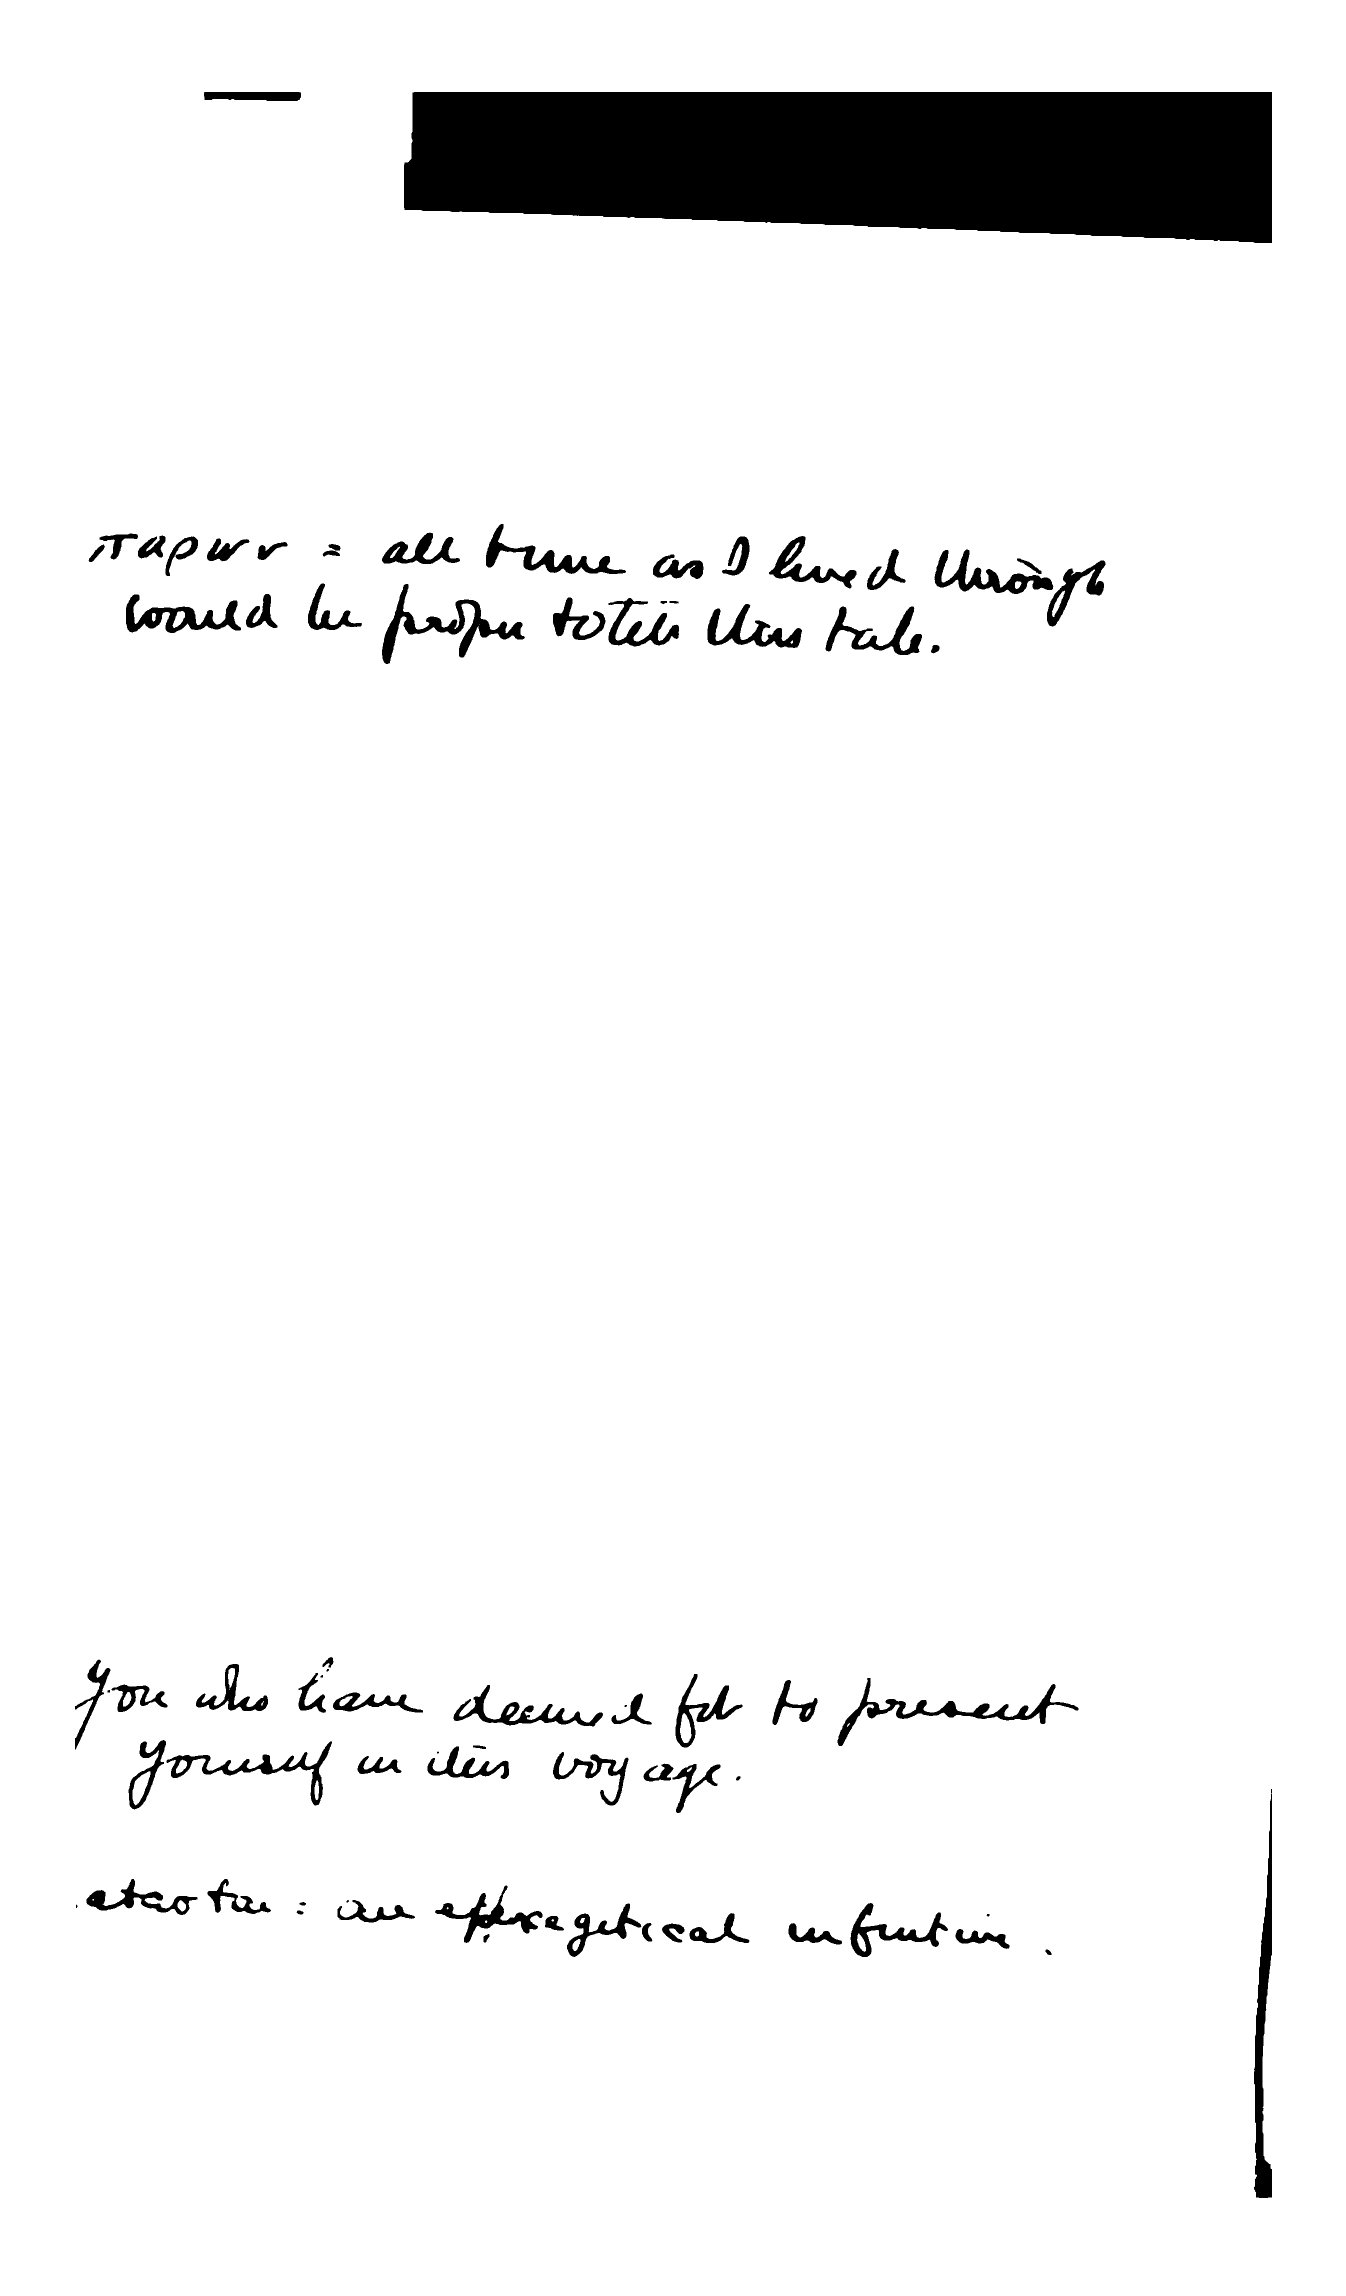 παρων = all time as I lived through
would be proper to tell this tale.
You who have deemed fit to present
yourself in this voyage.
: an epexegetical infinitive.